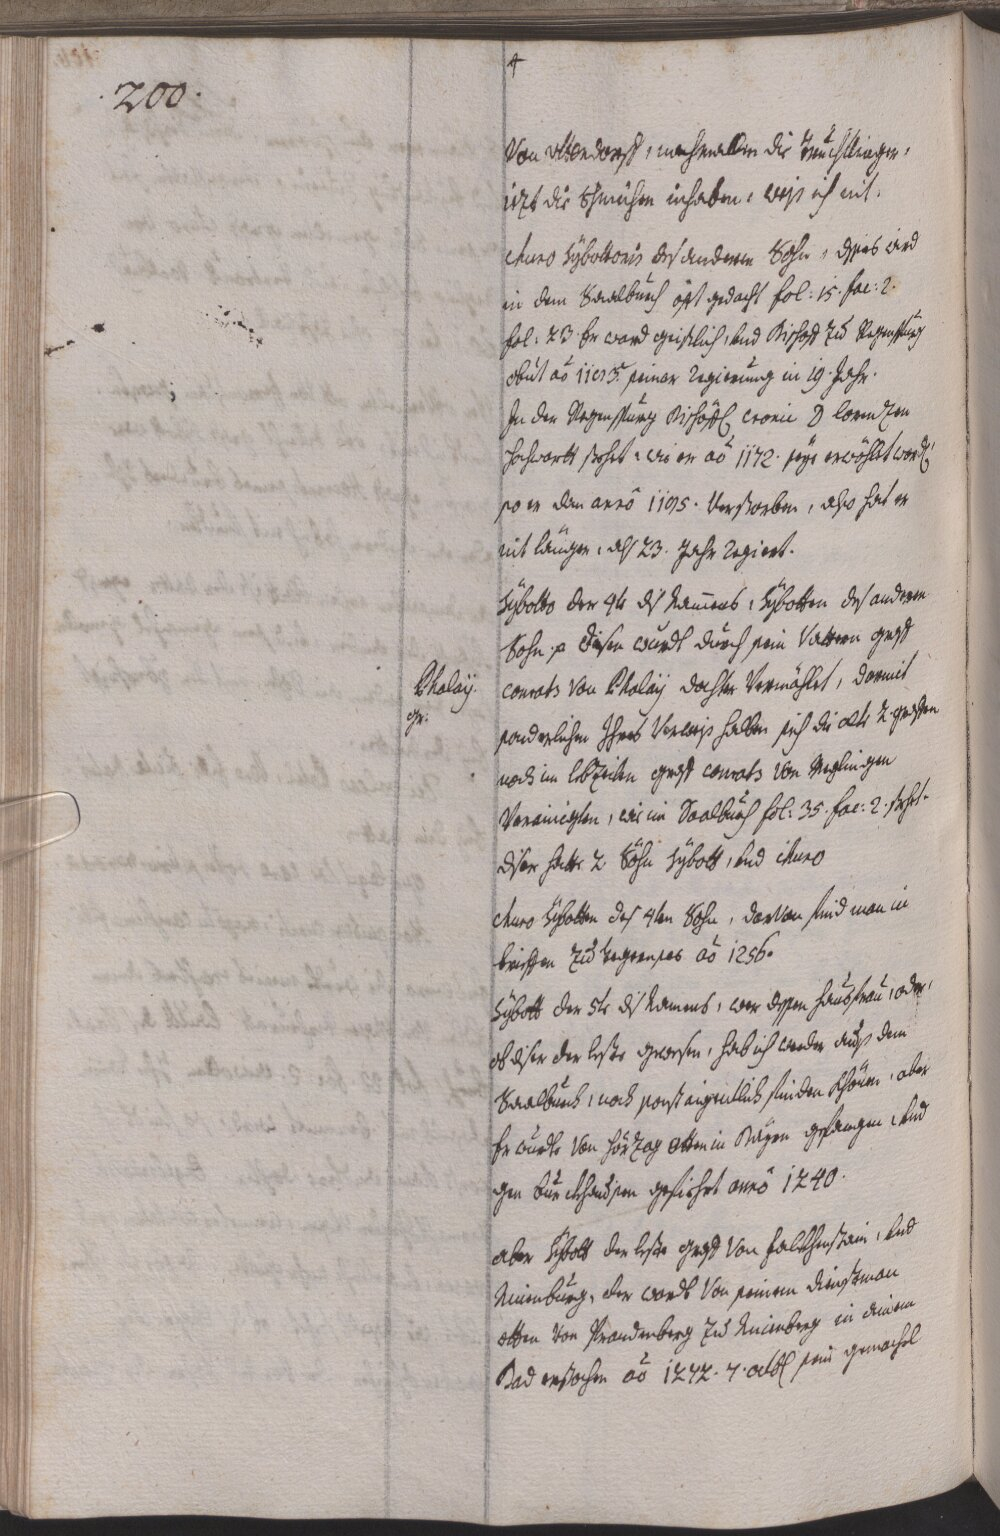 200.
Von Altendorff, nachmallen die Treuchtlinger,
itzt die Schmihen inhaben, weiß ich nit.
Cuno Sybottonis des anderen Sohn, dises wird
in dem Saalbuch offt gedacht fol: 15. fac: 2.
fol: 23. Er ward geistlich, und Bischoff zu Regenspurg
obiit ao 1195. seiner Regierung in 19. Jahr.
In der Regenspurg Bischöffl cronic D lorentzen
Hochwartt stehet, wie er ao 1172. seye erwöhlet word,
so er dan anno 1195. Verstorben, also hat er
nit länger, als 23. Jahr Regiert.
Sybotto der 4te diß Namens, Sybotten des anderen
Sohn. disen wurdt durch sein Vattern graff
Phalaÿ.
gr:
conrats Von Phalaÿ dochter Vermählet, darmit
sonderlichen Ihres Verweiß halben sich die alte 2 graffen
noch im lebzeiten graff conrats Von Neglingen
Verainigten, wie im Saalbuch fol: 35. fac: 2. stehet.
diser hatte 2 Söhn Sybott, und Cuno
Cuno Sybotten des 4ten Sohn, darvon find man in
brieffen zu Tegernsee ao 1256.
Sybott der 5te diß Namens, wer dessen haußfrau, oder,
ob diser der leste gewesen, hab ich weder auß dem
Saalbuch, noch sonst aigentlich finden Khönen, aber
Er wurde Von Hörzog Otten in Baÿrn gefangen, und
gen Burckhausen gefiehrt anno 1240.
aber Sybott der leste graff Von Falkhenstain, und
Neuenburg, der wardt Von seinem dienstman
Otten Von Prandenberg zu Neuenberg in ainem
Bad erstochen ao 1272. 7. octobl sein gemachel